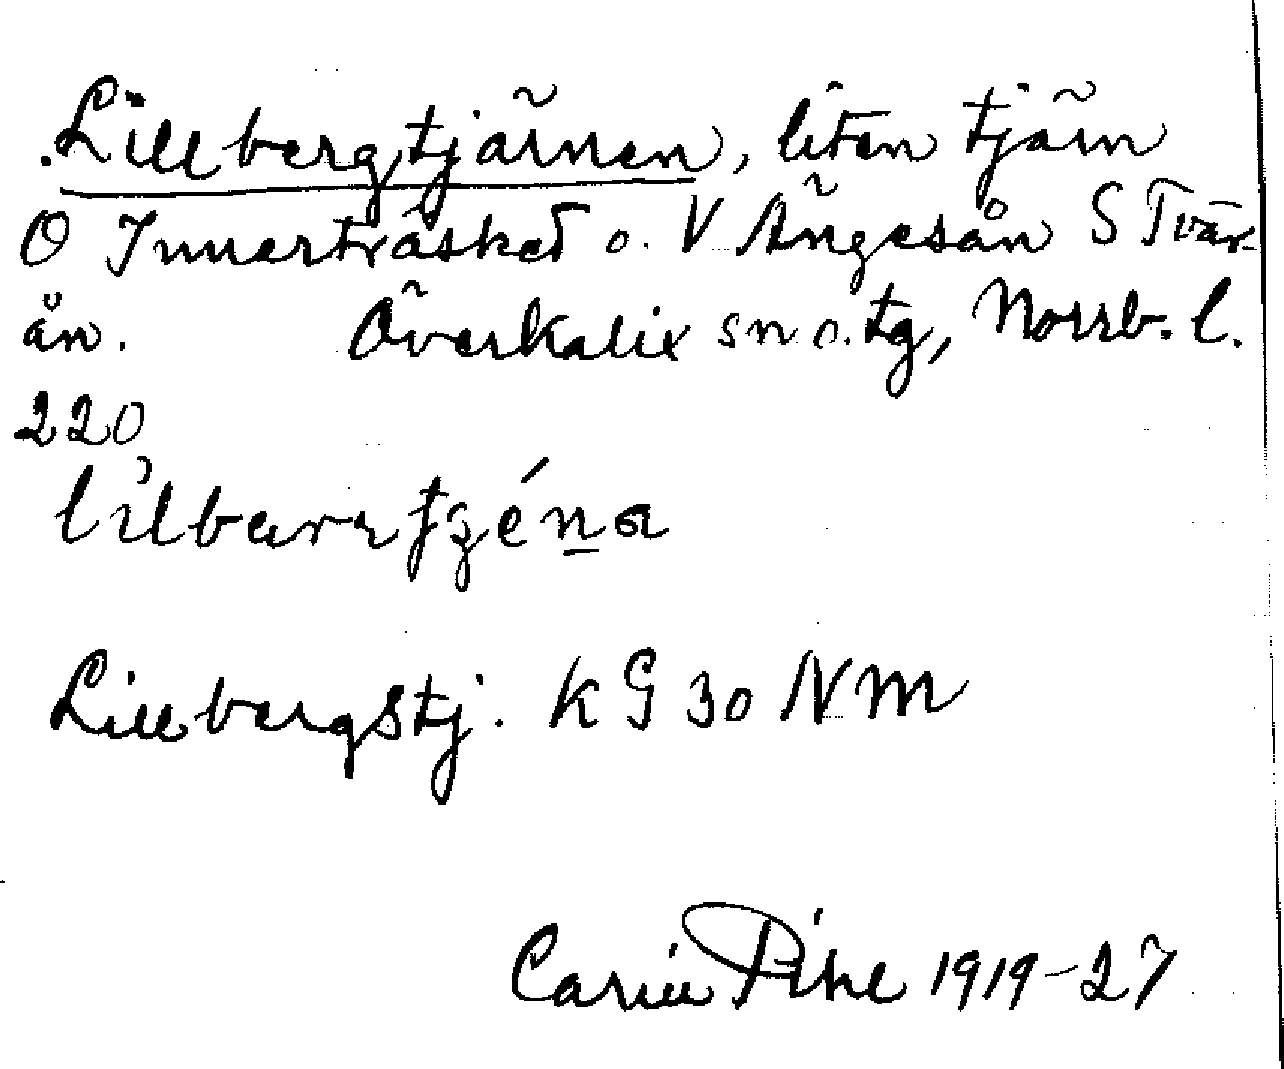 Lillbergtjärnen, liten tjärn
O Innerträsket o. V Ängesån S Tvär-
ån. Överkalix sn o. tg, Norrb. l.
220
Lillbergstj. KG 30 NM
Carin Pihl 1919-27